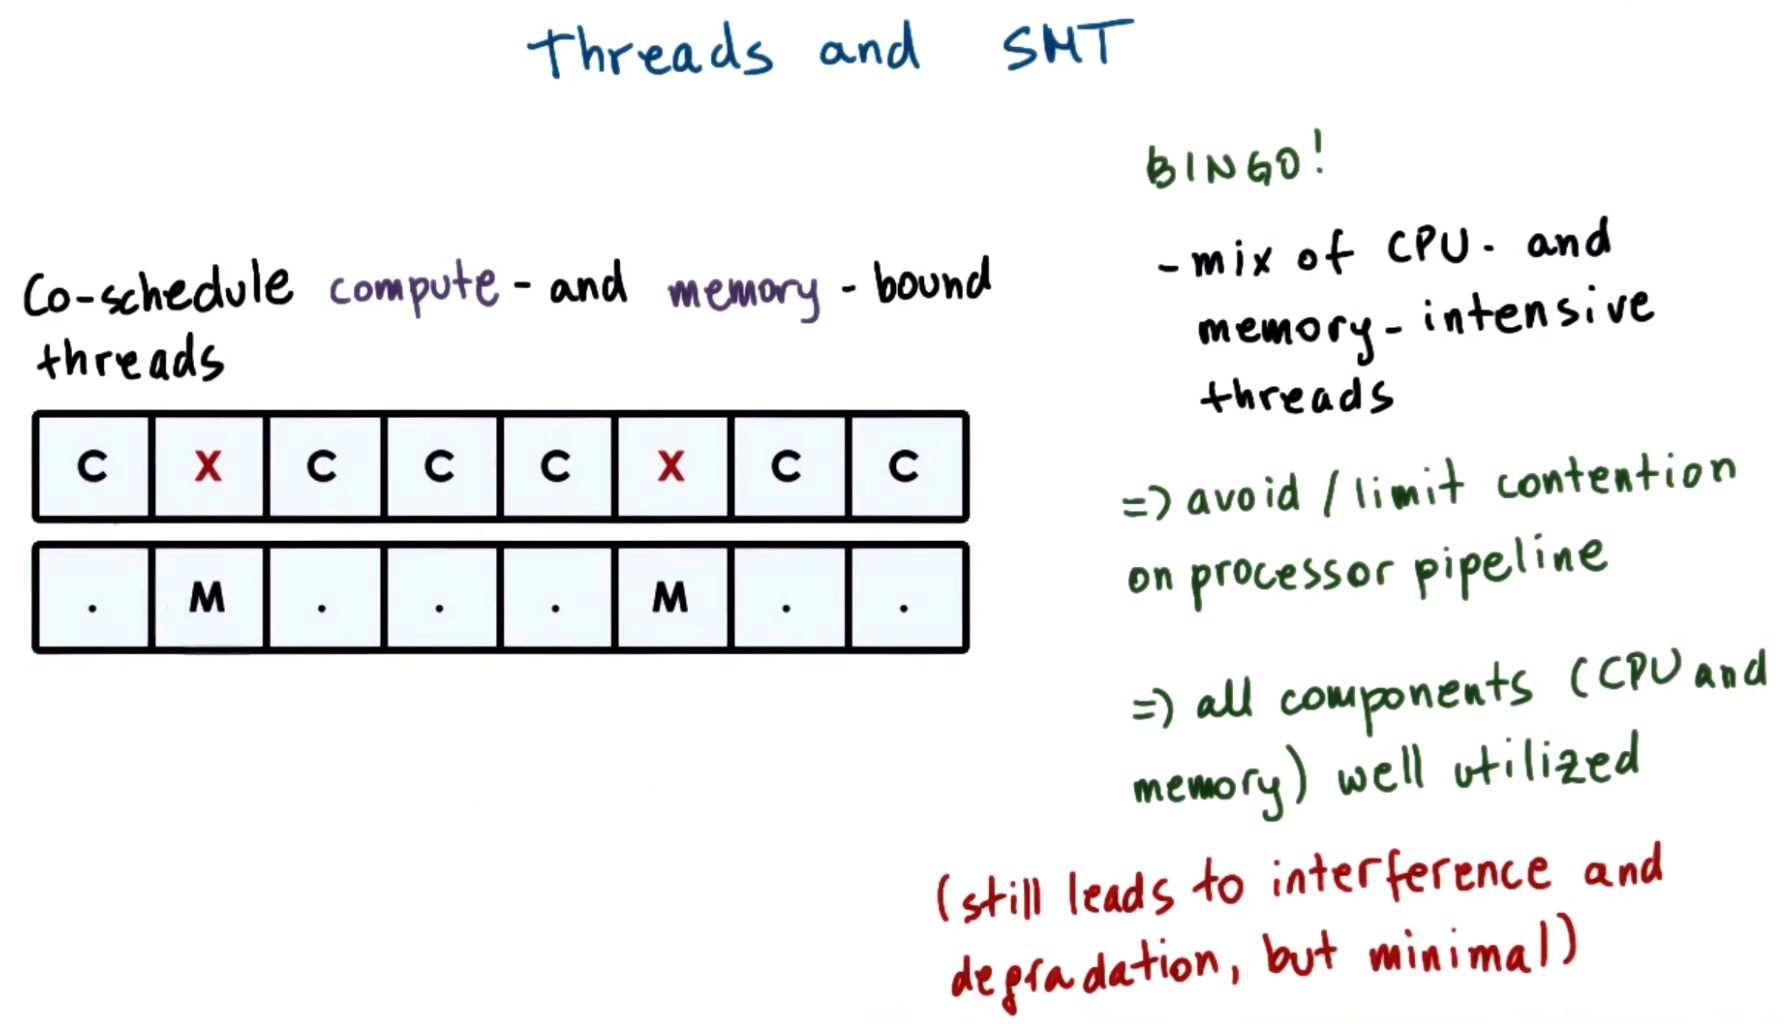 Threads and SMT
Co-schedule compute - and memory - bound
threads
C X C C C X C C
. M . . . M . .
BINGO!
- mix of CPU- and
memory-intensive
threads
=> avoid / limit contention
on processor pipeline
=> all components (CPU and
memory) well utilized
(still leads to interference and
degradation, but minimal)